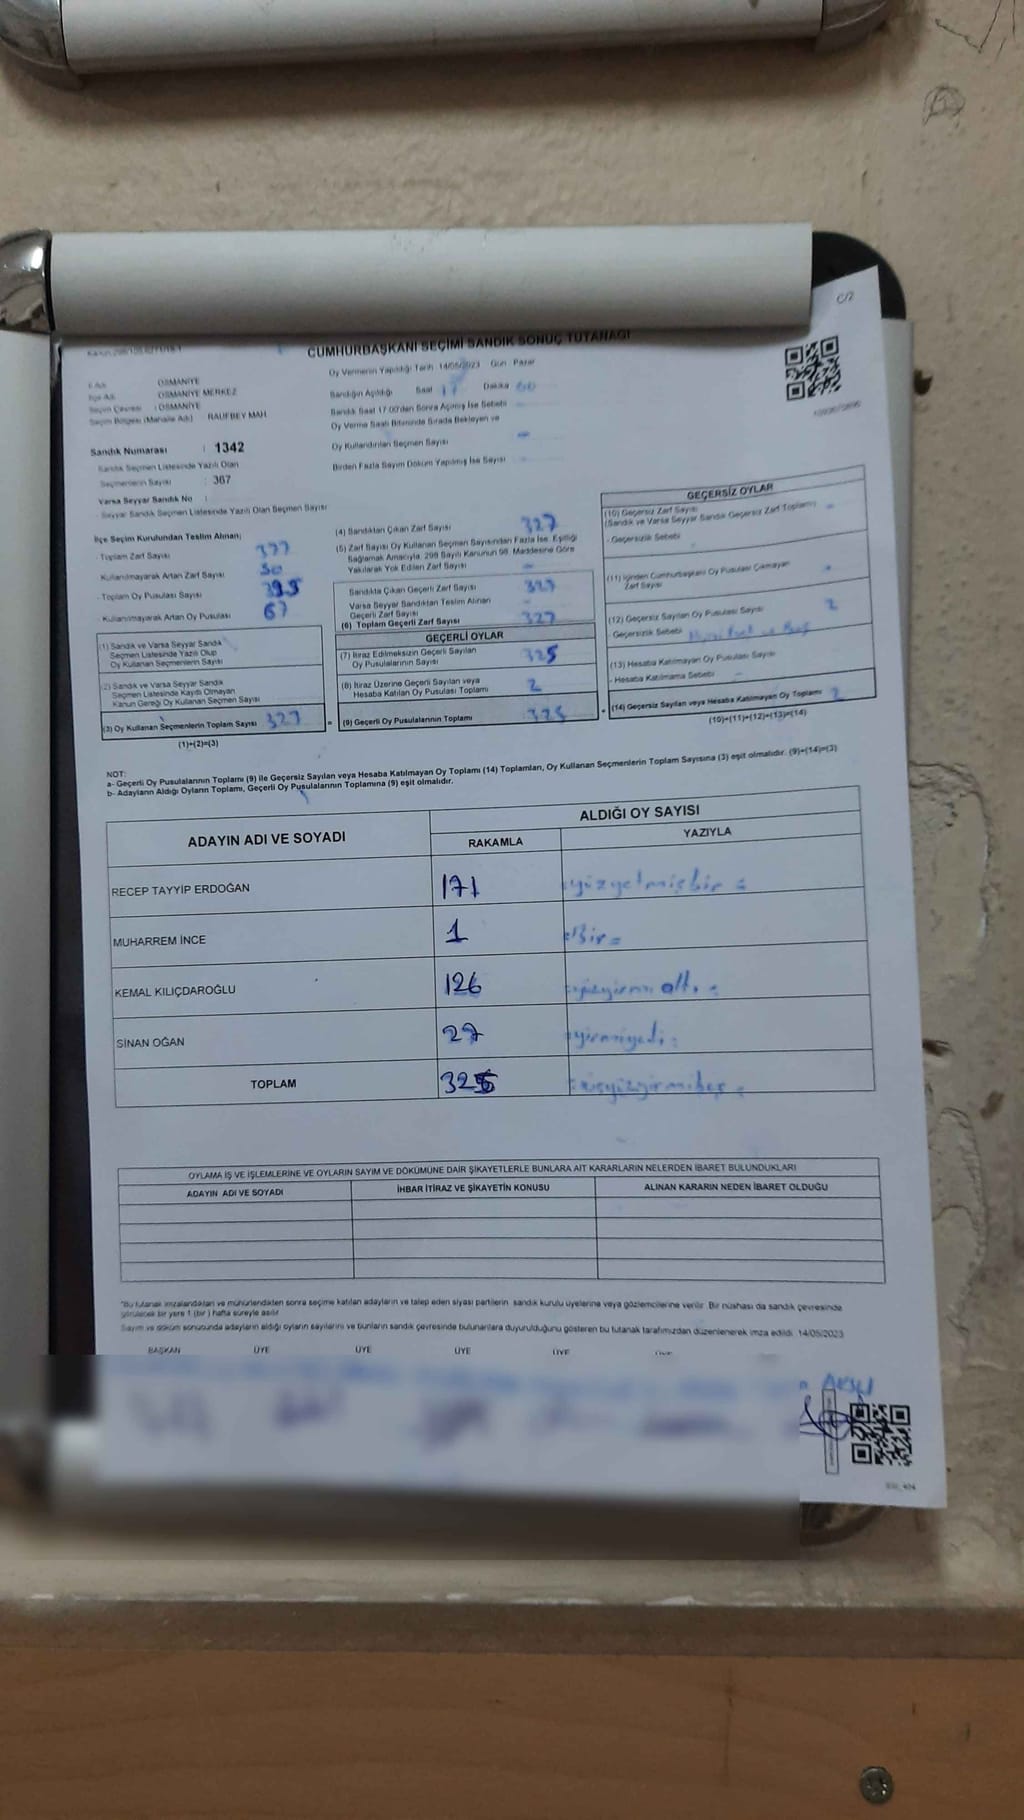 C/2
CUMHURBAŞKANI SEÇİMİ SANDIK SONUÇ TUTANAĞI
OSMANİYE
OSMANİYE MERKEZ
OSMANİYE
RAUFBEY MAH
Oy Vermenin Yapıldığı Tarih 14/05/2023 Gün Pazar
Sandığın Açıldığı Saat 17 Dakika 00
Sandık Saat 17:00'den Sonra Açılmış İse Sebebi
Oy Verme Saati Bitiminde Sırada Bekleyen ve
Oy Kullandırılan Seçmen Sayısı
Birden Fazla Sayım Döküm Yapılmış İse Sayısı
Sandık Numarası : 1342
Sandık Seçmen Listesinde Yazılı Olan
Seçmenlerin Sayısı : 367
Varsa Seyyar Sandık No :
Seyyar Sandık Seçmen Listesinde Yazılı Olan Seçmen Sayısı
İlçe Seçim Kurulundan Teslim Alınan;
Toplam Zarf Sayısı
Kullanılmayarak Artan Zarf Sayısı
Toplam Oy Pusulası Sayısı
Kullanılmayarak Artan Oy Pusulası 67
(1) Sandık ve Varsa Seyyar Sandık
Seçmen Listesinde Yazılı Olup
Oy Kullanan Seçmenlerin Sayısı
(2) Sandık ve Varsa Seyyar Sandık
Seçmen Listesinde Kayıtlı Olmayan
Kanun Gereği Oy Kullanan Seçmen Sayısı
(3) Oy Kullanan Seçmenlerin Toplam Sayısı 327
(1)+(2)=(3)
(4) Sandıktan Çıkan Zarf Sayısı 327
(5) Zarf Sayısı Oy Kullanan Seçmen Sayısından Fazla İse, Eşitliği
Sağlamak Amacıyla, 298 Sayılı Kanunun 98. Maddesine Göre
Yakılarak Yok Edilen Zarf Sayısı -
Sandıkta Çıkan Geçerli Zarf Sayısı 327
Varsa Seyyar Sandıktan Teslim Alınan
Geçerli Zarf Sayısı -
(6) Toplam Geçerli Zarf Sayısı 327
GEÇERLİ OYLAR
(7) İtiraz Edilmeksizin Geçerli Sayılan
Oy Pusulalarının Sayısı 325
(8) İtiraz Üzerine Geçerli Sayılan veya
Hesaba Katılan Oy Pusulası Toplamı 2
=
(9) Geçerli Oy Pusulalarının Toplamı 325
GEÇERSİZ OYLAR
(10) Geçersiz Zarf Sayısı
(Sandık ve Varsa Seyyar Sandık Geçersiz Zarf Toplamı) -
- Geçersizlik Sebebi
(11) İçinden Cumhurbaşkanı Oy Pusulası Çıkmayan
Zarf Sayısı
(12) Geçersiz Sayılan Oy Pusulası Sayısı 2
- Geçersizlik Sebebi
(13) Hesaba Katılmayan Oy Pusulası Sayısı
- Hesaba Katılmama Sebebi
+
(14) Geçersiz Sayılan veya Hesaba Katılmayan Oy Toplamı 2
(10)+(11)+(12)+(13)=(14)
NOT:
a- Geçerli Oy Pusulalarının Toplamı (9) ile Geçersiz Sayılan veya Hesaba Katılmayan Oy Toplamı (14) Toplamları, Oy Kullanan Seçmenlerin Toplam Sayısına (3) eşit olmalıdır. (9)+(14)=(3)
b- Adayların Aldığı Oyların Toplamı, Geçerli Oy Pusulalarının Toplamına (9) eşit olmalıdır.
ADAYIN ADI VE SOYADI
ALDIĞI OY SAYISI
RAKAMLA YAZIYLA
RECEP TAYYİP ERDOĞAN 171 yüzyetmişbir =
MUHARREM İNCE 1 =Bir=
KEMAL KILIÇDAROĞLU 126 =yüzyirmi altı =
SİNAN OĞAN 27 =yirmiyedi=
TOPLAM 325 =üçyüzyirmibeş =
OYLAMA İŞ VE İŞLEMLERİNE VE OYLARIN SAYIM VE DÖKÜMÜNE DAİR ŞİKAYETLERLE BUNLARA AİT KARARLARIN NELERDEN İBARET BULUNDUKLARI
ADAYIN ADI VE SOYADI İHBAR İTİRAZ VE ŞİKAYETİN KONUSU ALINAN KARARIN NEDEN İBARET OLDUĞU
*Bu tutanak imzalandıktan ve mühürlendikten sonra seçime katılan adayların ve talep eden siyasi partilerin sandık kurulu üyelerine veya gözlemcilerine verilir. Bir nüshası da sandık çevresinde
görülecek bir yere 1 (bir) hafta süreyle asılır.
Sayım ve döküm sonucunda adayların aldığı oyların sayılarını ve bunların sandık çevresinde bulunanlara duyurulduğunu gösteren bu tutanak tarafımızdan düzenlenerek imza edildi. 14/05/2023
BAŞKAN ÜYE ÜYE ÜYE ÜYE